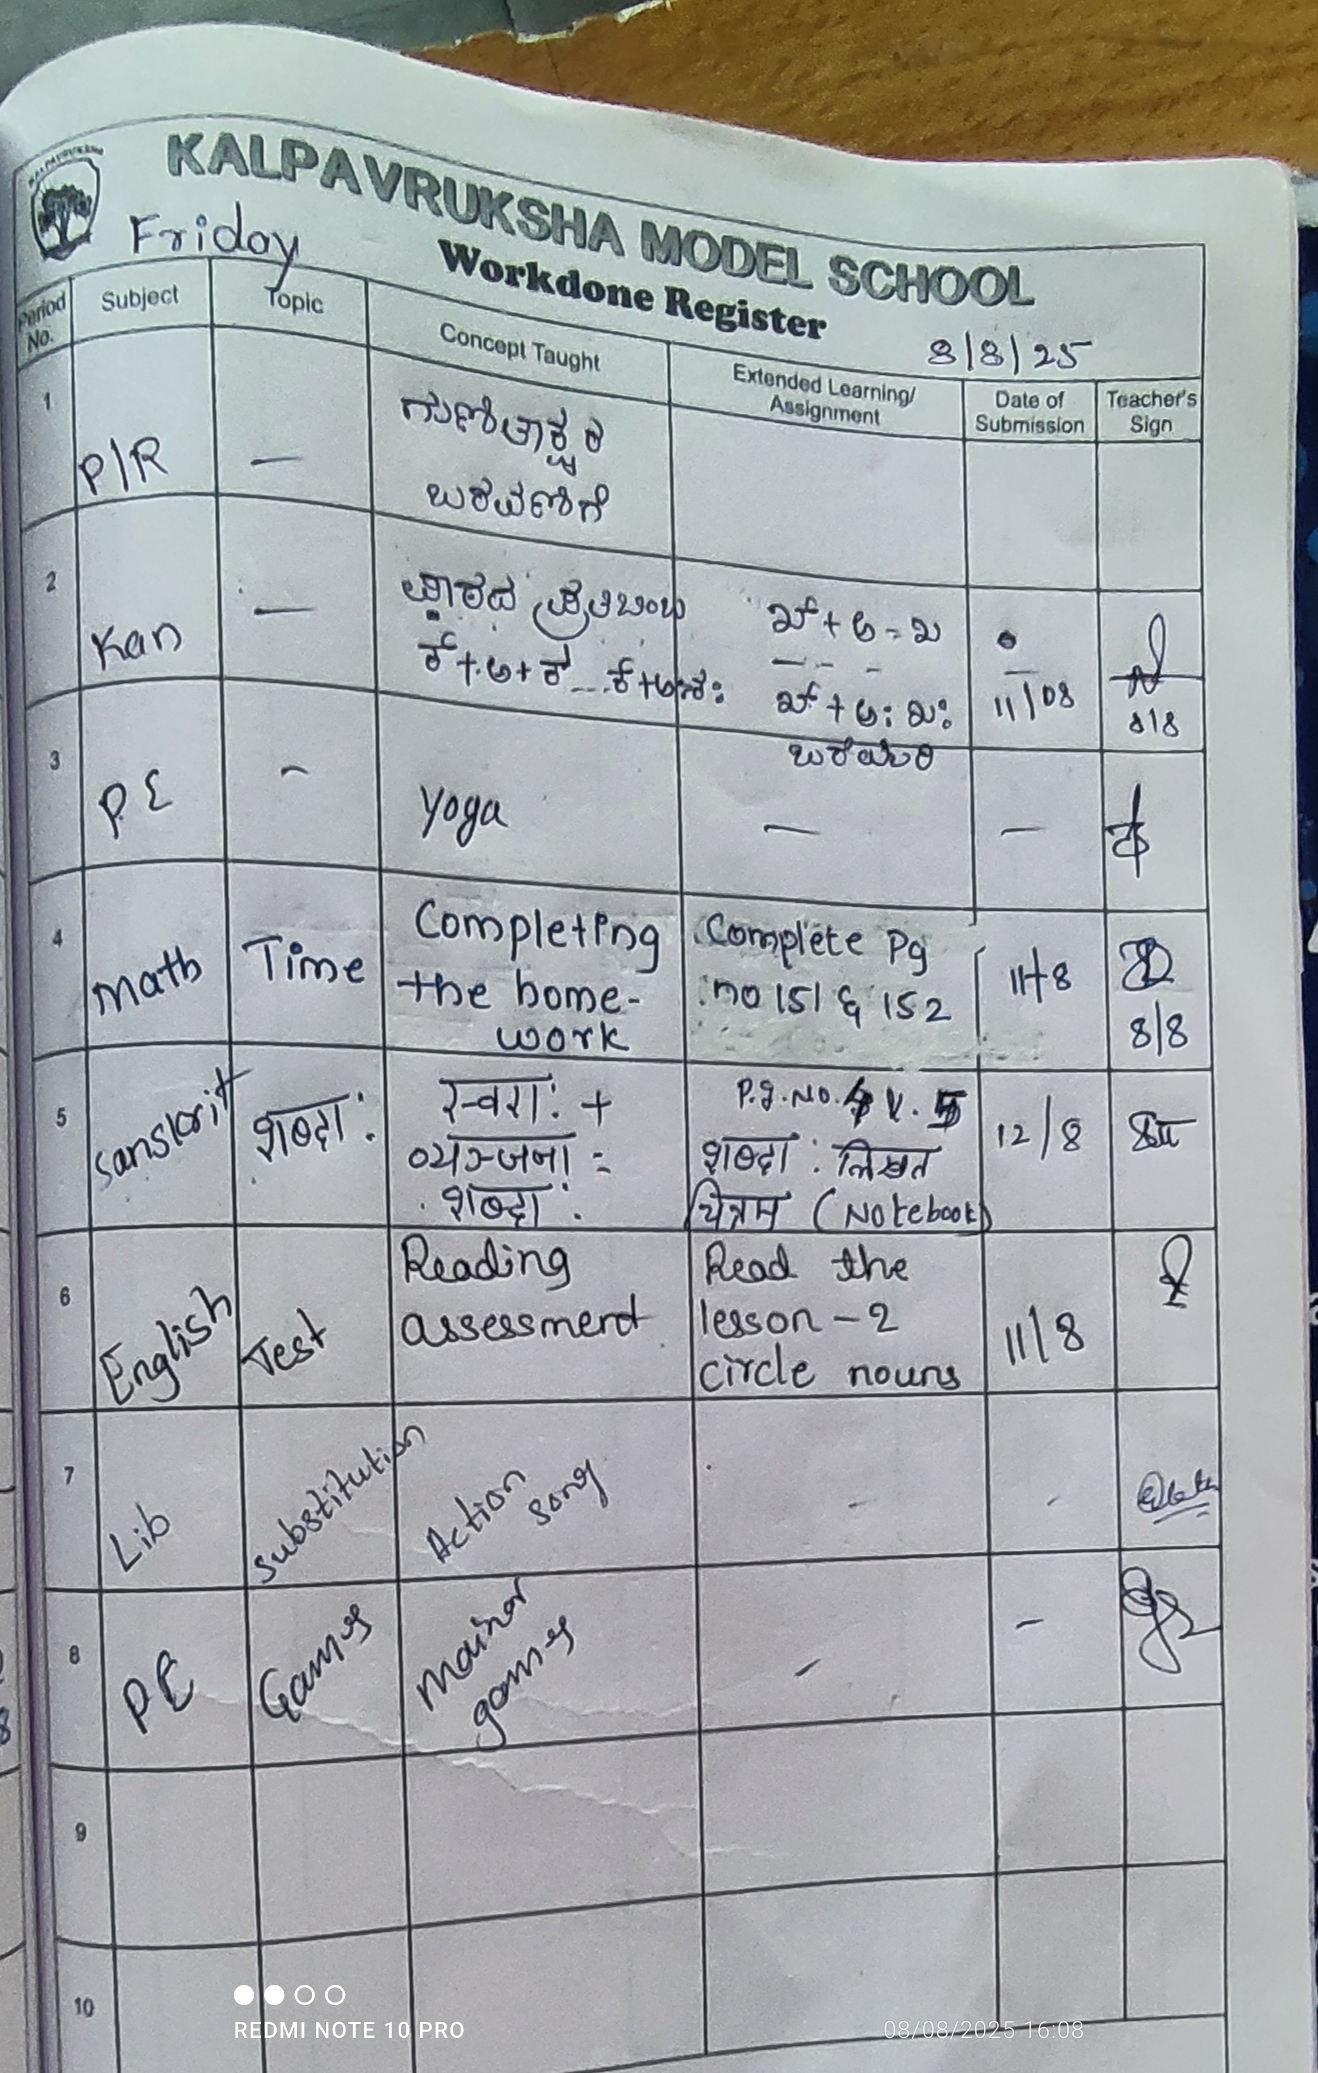 KALPAVRUKSHA
KALPAVRUKSHA MODEL SCHOOL
Friday
Workdone Register
8/8/25
Period No.
Subject
Topic
Concept Taught
Extended Learning/
Assignment
Date of
Submission
Teacher's
Sign
1
P/R
—
ಗುಣಿತಾಕ್ಷರ
ಬರವಣಿಗೆ
2
Kan
—
ಕ್+ಅ+ಕ
ಖ್+ಅ=ಖ
- - -
ಖ್+ಅ: ಖಃ
11/08
8/8
3
P E
-
Yoga
—
—
4
Math
Time
Completing
the home-
work
Complete Pg
no 151 & 152
11/8
8/8
5
Sanskrit
शब्दा:
स्वरा: +
व्यञ्जना =
शब्दा:
P.g.No. 4 5
शब्दा: लिखत
चित्रम (Notebook)
12/8
6
English
Test
Reading
assessment
Read the
lesson-2
circle nouns
11/8
7
Lib
Substitution
Action
song
-
-
8
PE
Games
Mainor
games
-
-
9
10
REDMI NOTE 10 PRO
08/08/2025 16:08